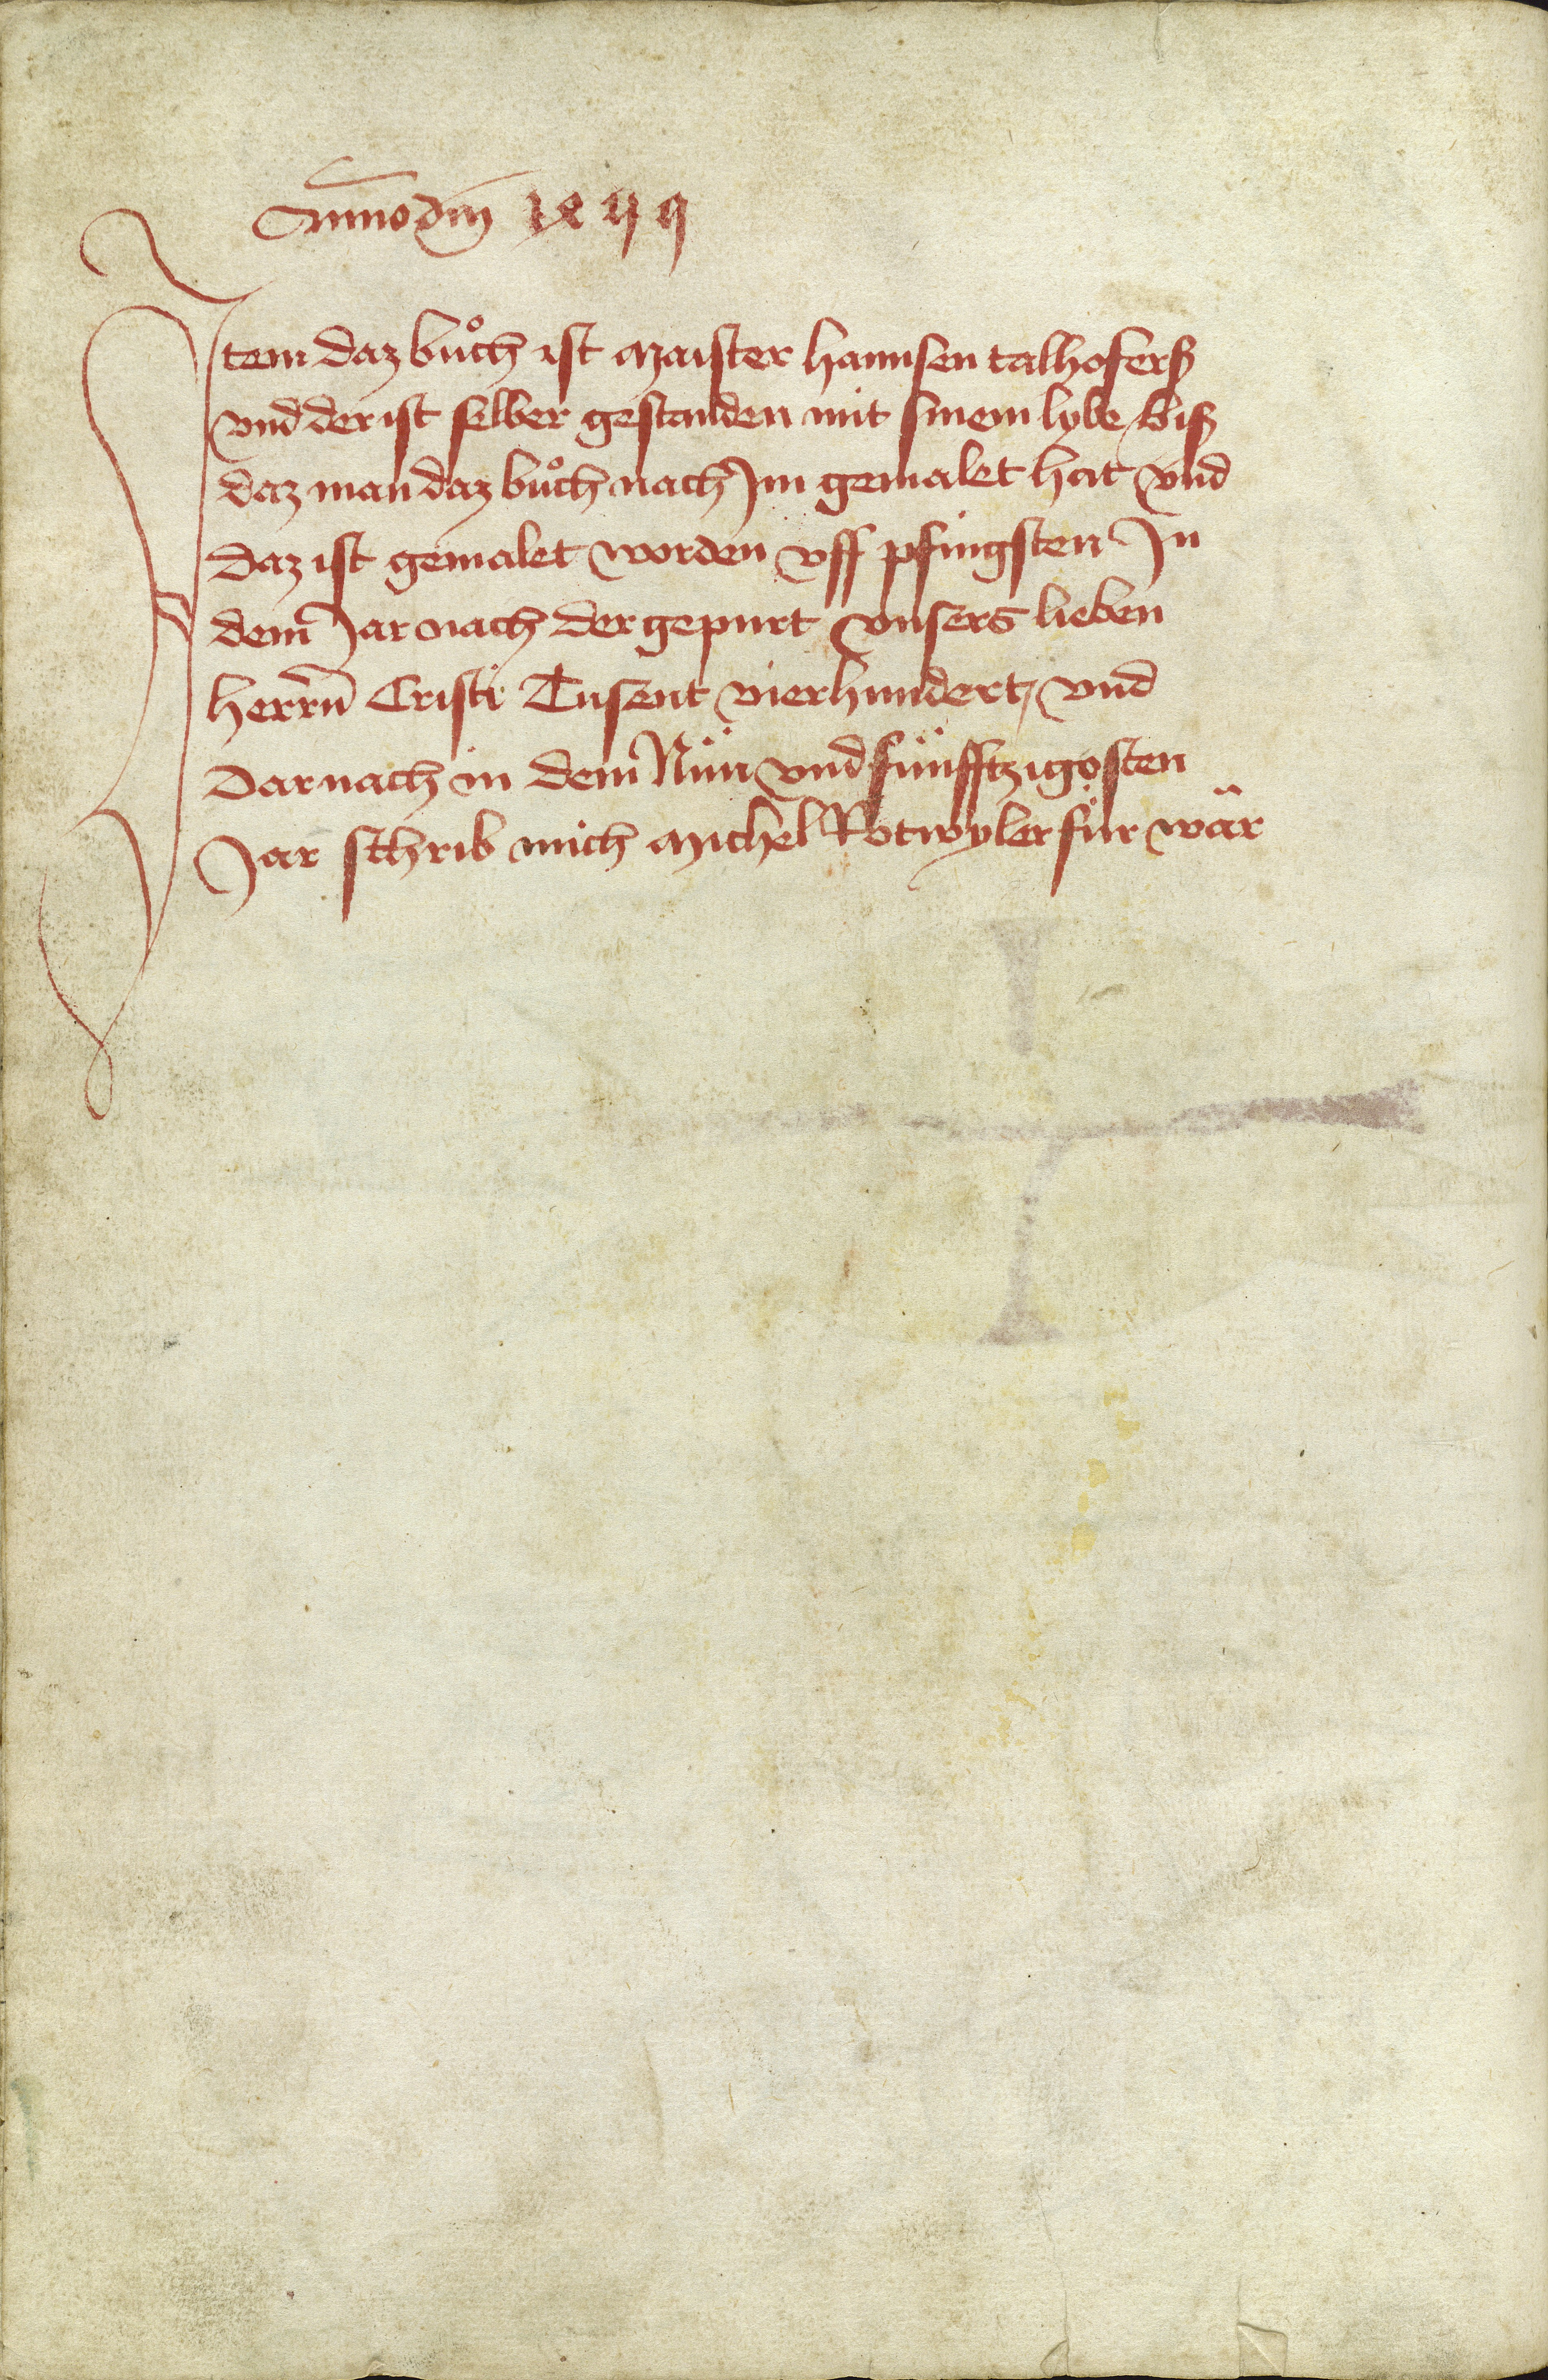 Anno dm̄
Item daz bůch ist maister hannsen talhoferß
vnd der ist selber gestanden mit sinem lybe biß
daz man daz bůch nach Im gemalet hat vnd
daz ist gemalet worden vff pfingsten In
dem Jar nach der gepurt vnsers lieben
herrn̄ Cristi Tusent vierhundert vnd
darnach in dem Nün vnd fünfftzigosten
Jar schrib mich michel Rotwyler für wär